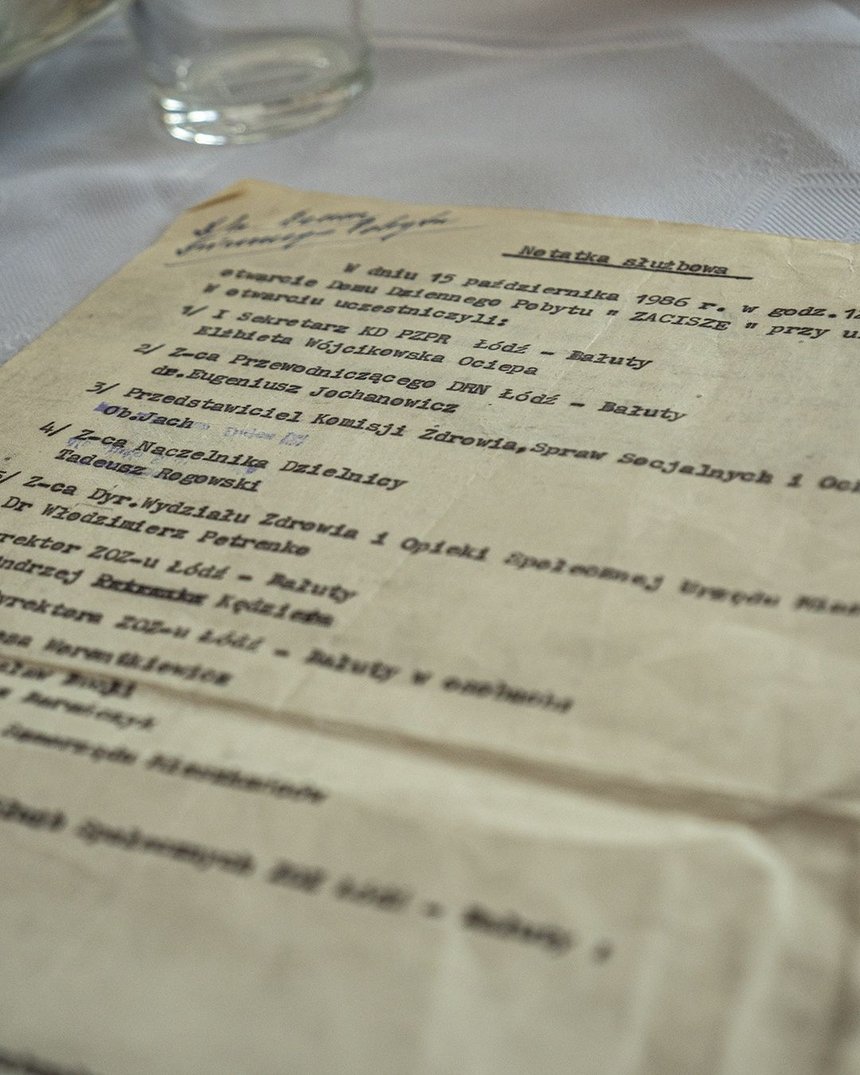 Notatka służbowa
W dniu 15 października 1986 r. w godz.12
otwarcie Domu Dziennego Pobytu " ZACISZE " przy u
W otwarciu uczestniczyli:
1/ I Sekretarz KD PZPR Łódź - Bałuty
Elżbieta Wójcikowska Ociepa
2/ Z-ca Przewodniczącego DRN Łódź - Bałuty
dr.Eugeniusz Jochanowicz
3/ Przedstawiciel Komisji Zdrowia,Spraw Socjalnych i Och
Ob.Jach
4/ Z-ca Naczelnika Dzielnicy
Tadeusz Rogowski
5/ Z-ca Dyr.Wydziału Zdrowia i Opieki Społecznej Urzędu Mias
Dr Włodzimierz Petrenko
rektor ZOZ-u Łódź - Bałuty
ndrzej Kędziera
yrektora ZOZ-u Łódź - Bałuty w osobach:
Samorządu Mieszkańców
Społecznych ZOZ Łódź - Bałuty